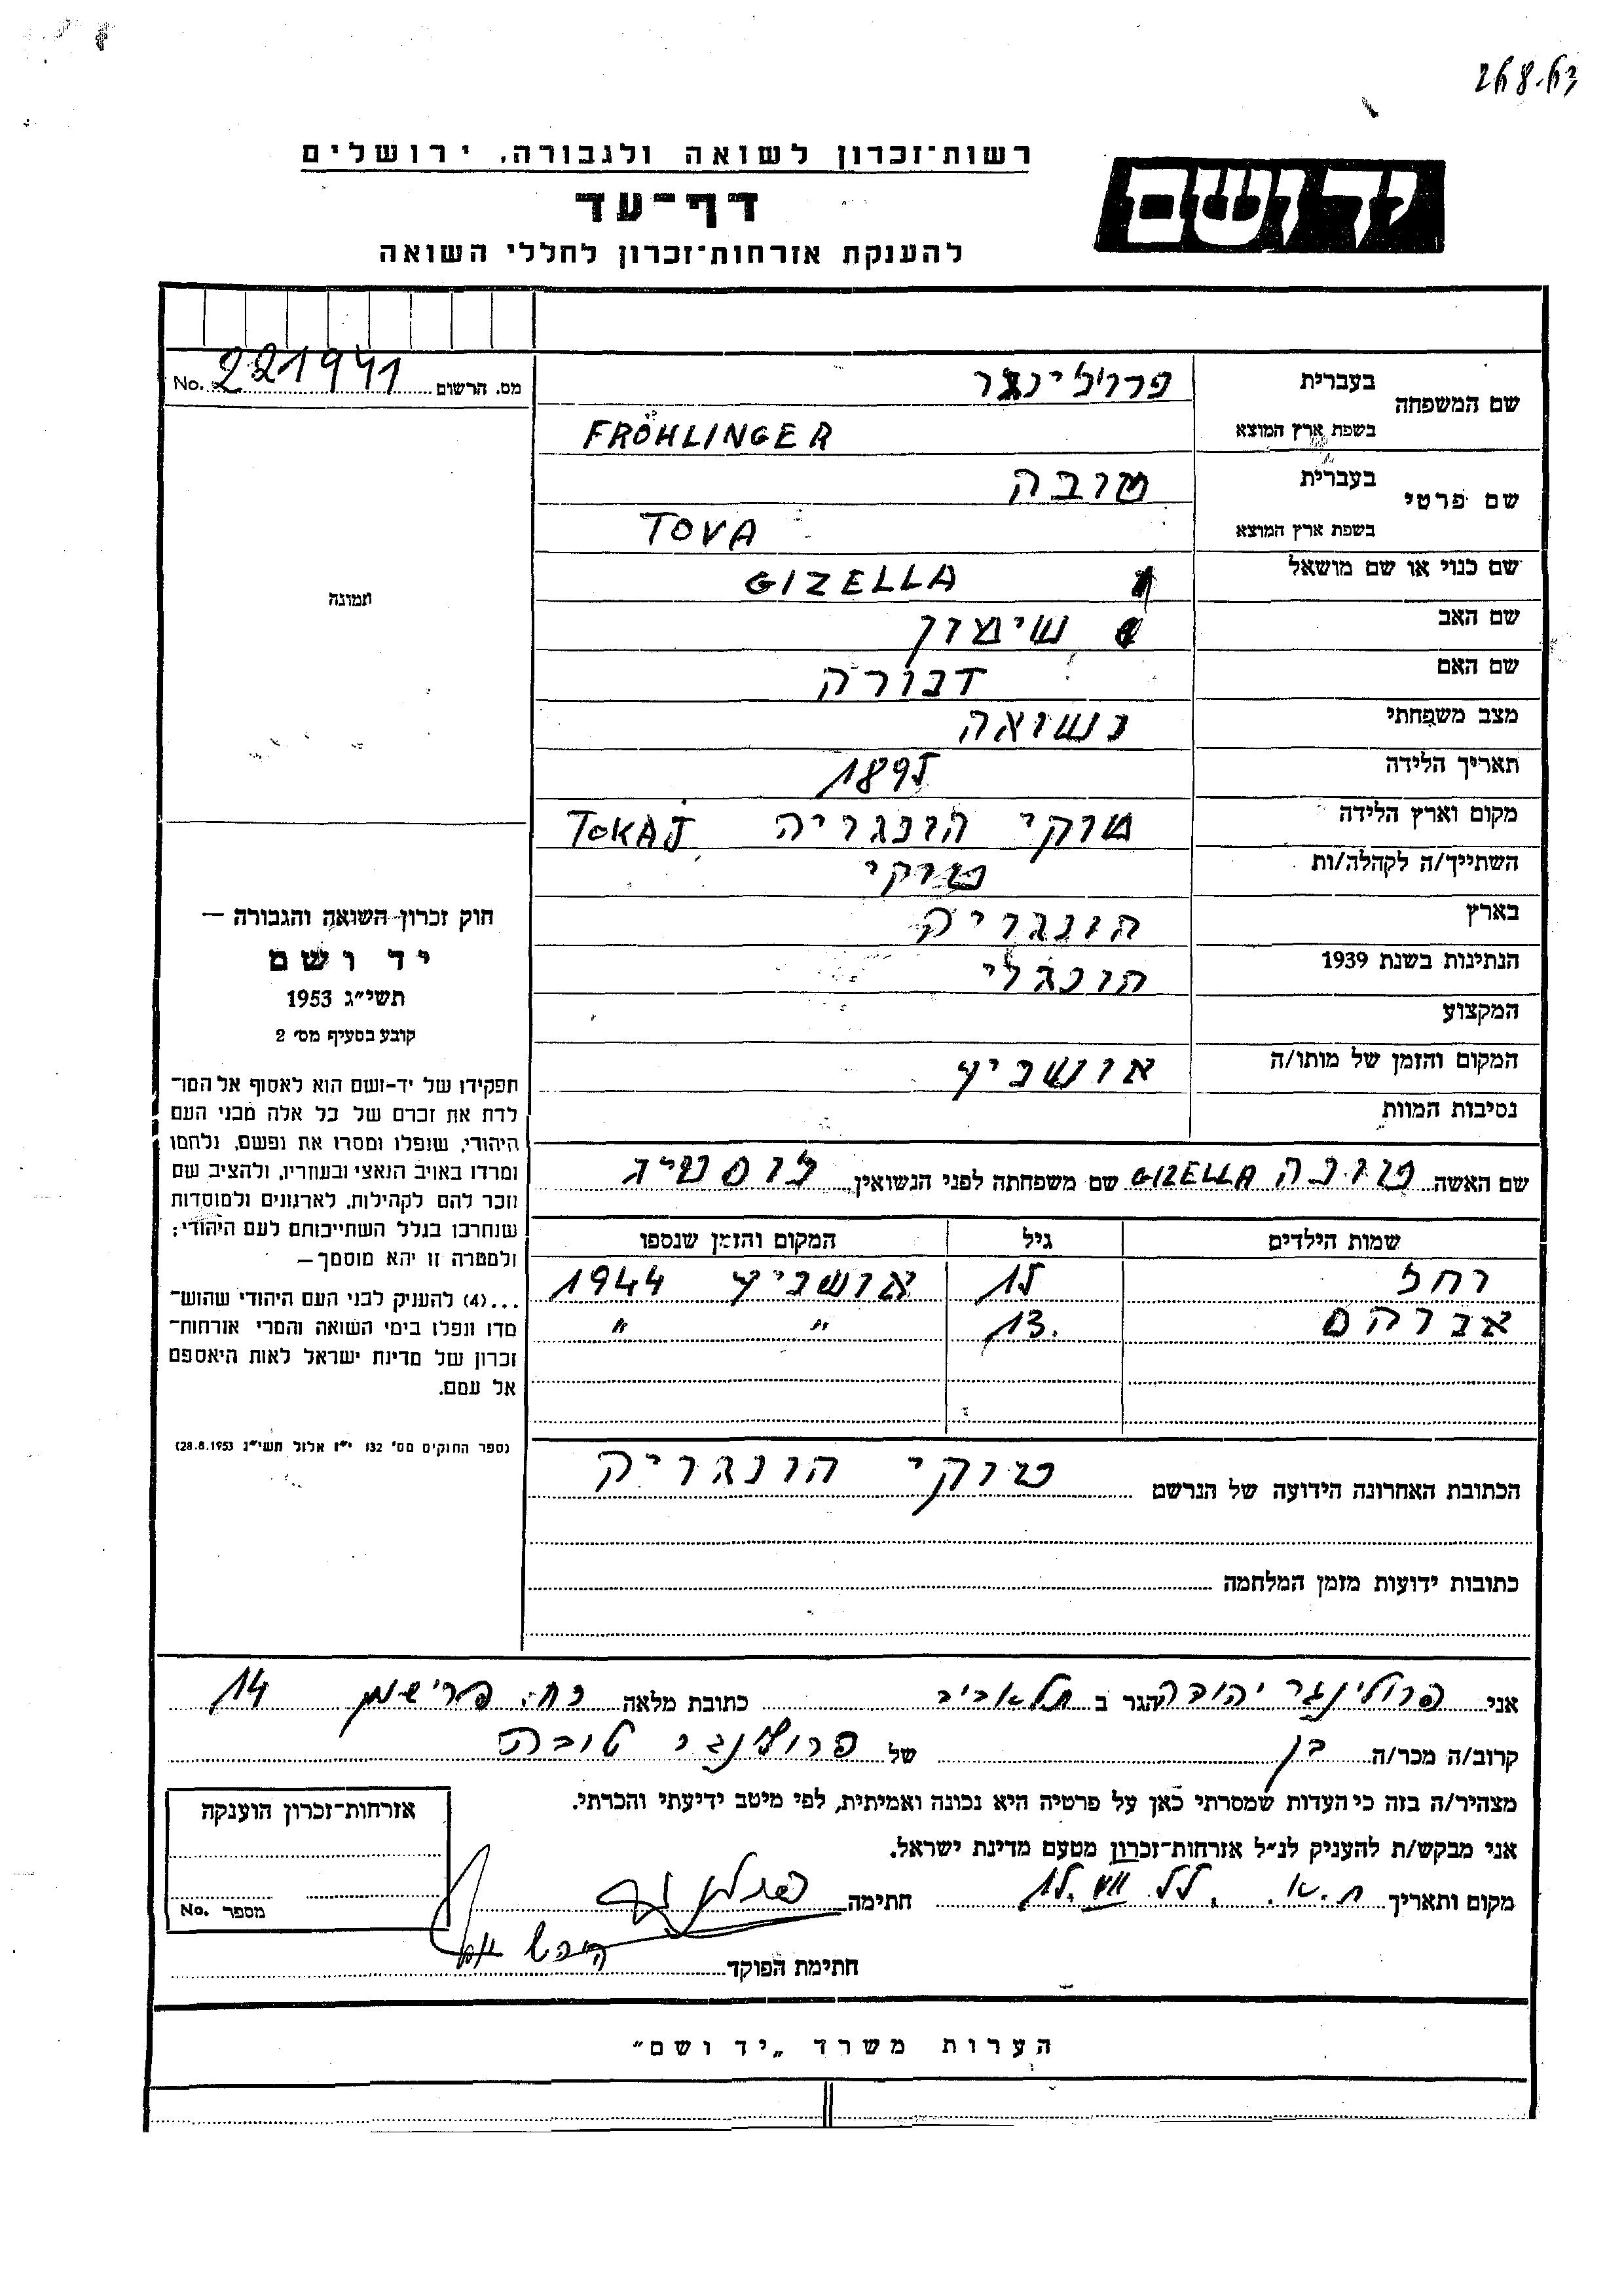 26.8.63
יד ושם
רשות־זכרון לשואה ולגבורה, ירושלים
דף־עד
להענקת אזרחות־זכרון לחללי השואה
מס. הרשום 221941 No.
שם המשפחה
בעברית פרולינגר
בשפת ארץ המוצא FRÖHLINGER
שם פרטי
בעברית טובה
בשפת ארץ המוצא TOVA
שם כנוי או שם מושאל GIZELLA
שם האב שימון
שם האם דבורה
מצב משפחתי נשואה
תאריך הלידה 1895
מקום וארץ הלידה טוקי הונגריה TOKAJ
השתייך/ה לקהלה/ות טוקי
בארץ הונגריה
הנתינות בשנת 1939 הונגרי
המקצוע
המקום והזמן של מותו/ה אושביץ
נסיבות המוות
שם האשה טובה GIZELLA שם משפחתה לפני הנשואין לוסטיג
שמות הילדים גיל המקום והזמן שנספו
רחל 15 אושביץ 1944
אברהם 13. " "
הכתובת האחרונה הידועה של הנרשם טוקי הונגריה
כתובות ידועות מזמן המלחמה
תמונה
חוק זכרון השואה והגבורה —
יד ושם
תשי"ג 1953
קובע בסעיף מס׳ 2
תפקידו של יד-ושם הוא לאסוף אל המו־
לדת את זכרם של כל אלה מבני העם
היהודי, שנפלו ומסרו את נפשם, נלחמו
ומרדו באויב הנאצי ובעוזריו, ולהציב שם
וזכר להם לקהילות, לארגונים ולמוסדות
שנחרבו בגלל השתייכותם לעם היהודי;
ולמטרה זו יהא מוסמך —
...(4) להעניק לבני העם היהודי שהוש־
מדו ונפלו בימי השואה והמרי אזרחות־
זכרון של מדינת ישראל לאות היאספם
אל עמם.
(ספר החוקים מס׳ 132 י"ז אלול תשי"ג 28.8.1953)
אני פרולינגר יהודה הגר ב תל אביב כתובת מלאה רח. פרישמן 14
קרוב/ה מכר/ה בן של פרולינגר טובה
מצהיר/ה בזה כי העדות שמסרתי כאן על פרטיה היא נכונה ואמיתית, לפי מיטב ידיעתי והכרתי.
אני מבקש/ת להעניק לנ"ל אזרחות־זכרון מטעם מדינת ישראל.
מקום ותאריך ת.א. חתימה
חתימת הפוקד
אזרחות־זכרון הוענקה
מספר No.
הערות משרד „יד ושם"